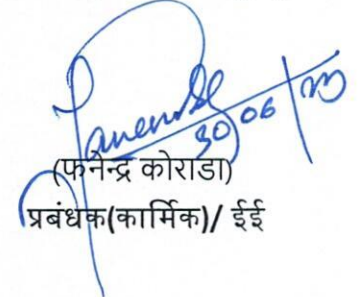 30/06/23
(फनेन्द्र कोराडा)
प्रबंधक(कार्मिक)/ ईई